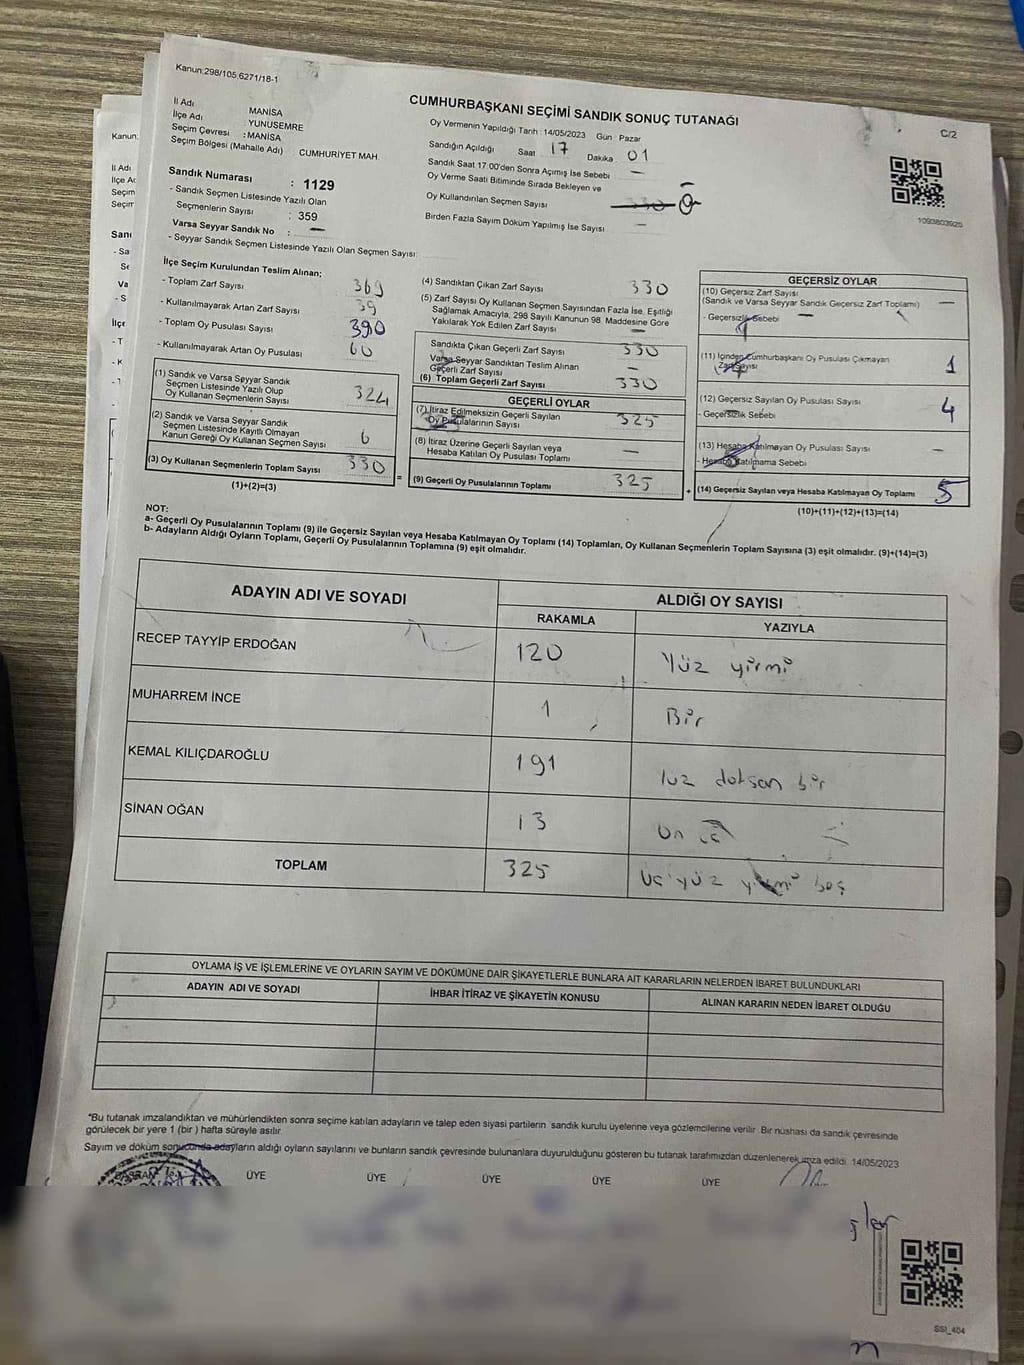 Kanun:298/105,6271/18-1
CUMHURBAŞKANI SEÇİMİ SANDIK SONUÇ TUTANAĞI
C/2
İl Adı MANİSA
İlçe Adı YUNUSEMRE
Seçim Çevresi : MANİSA
Seçim Bölgesi (Mahalle Adı) CUMHURİYET MAH.
Sandık Numarası : 1129
- Sandık Seçmen Listesinde Yazılı Olan
Seçmenlerin Sayısı : 359
Varsa Seyyar Sandık No : —
- Seyyar Sandık Seçmen Listesinde Yazılı Olan Seçmen Sayısı:
Oy Vermenin Yapıldığı Tarih : 14/05/2023 Gün : Pazar
Sandığın Açıldığı Saat 17 Dakika 01
Sandık Saat 17:00'den Sonra Açımış İse Sebebi —
Oy Verme Saati Bitiminde Sırada Bekleyen ve
Oy Kullandırılan Seçmen Sayısı
Birden Fazla Sayım Döküm Yapılmış İse Sayısı —
1093803925
İlçe Seçim Kurulundan Teslim Alınan;
- Toplam Zarf Sayısı 369
- Kullanılmayarak Artan Zarf Sayısı 39
- Toplam Oy Pusulası Sayısı 390
- Kullanılmayarak Artan Oy Pusulası 60
(1) Sandık ve Varsa Seyyar Sandık
Seçmen Listesinde Yazılı Olup
Oy Kullanan Seçmenlerin Sayısı 324
(2) Sandık ve Varsa Seyyar Sandık
Seçmen Listesinde Kayıtlı Olmayan
Kanun Gereği Oy Kullanan Seçmen Sayısı 6
(3) Oy Kullanan Seçmenlerin Toplam Sayısı 330
(1)+(2)=(3)
(4) Sandıktan Çıkan Zarf Sayısı 330
(5) Zarf Sayısı Oy Kullanan Seçmen Sayısından Fazla İse, Eşitliği
Sağlamak Amacıyla, 298 Sayılı Kanunun 98. Maddesine Göre
Yakılarak Yok Edilen Zarf Sayısı —
Sandıkta Çıkan Geçerli Zarf Sayısı 330
Varsa Seyyar Sandıktan Teslim Alınan
Geçerli Zarf Sayısı —
(6) Toplam Geçerli Zarf Sayısı 330
GEÇERLİ OYLAR
(7) İtiraz Edilmeksizin Geçerli Sayılan
Oy Pusulalarının Sayısı 325
(8) İtiraz Üzerine Geçerli Sayılan veya
Hesaba Katılan Oy Pusulası Toplamı —
(9) Geçerli Oy Pusulalarının Toplamı 325
GEÇERSİZ OYLAR
(10) Geçersiz Zarf Sayısı
(Sandık ve Varsa Seyyar Sandık Geçersiz Zarf Toplamı) —
- Geçersizlik Sebebi —
(11) İçinden Cumhurbaşkanı Oy Pusulası Çıkmayan
Zarf Sayısı 1
(12) Geçersiz Sayılan Oy Pusulası Sayısı 4
- Geçersizlik Sebebi
(13) Hesaba Katılmayan Oy Pusulası Sayısı —
- Hesaba Katılmama Sebebi
+ (14) Geçersiz Sayılan veya Hesaba Katılmayan Oy Toplamı 5
(10)+(11)+(12)+(13)=(14)
NOT:
a- Geçerli Oy Pusulalarının Toplamı (9) ile Geçersiz Sayılan veya Hesaba Katılmayan Oy Toplamı (14) Toplamları, Oy Kullanan Seçmenlerin Toplam Sayısına (3) eşit olmalıdır. (9)+(14)=(3)
b- Adayların Aldığı Oyların Toplamı, Geçerli Oy Pusulalarının Toplamına (9) eşit olmalıdır.
ADAYIN ADI VE SOYADI ALDIĞI OY SAYISI
RAKAMLA YAZIYLA
RECEP TAYYİP ERDOĞAN 120 Yüz yirmi
MUHARREM İNCE 1 Bir
KEMAL KILIÇDAROĞLU 191 Yüz doksan bir
SİNAN OĞAN 13 On
TOPLAM 325 Üç yüz yirmi beş
OYLAMA İŞ VE İŞLEMLERİNE VE OYLARIN SAYIM VE DÖKÜMÜNE DAİR ŞİKAYETLERLE BUNLARA AİT KARARLARIN NELERDEN İBARET BULUNDUKLARI
ADAYIN ADI VE SOYADI İHBAR İTİRAZ VE ŞİKAYETİN KONUSU ALINAN KARARIN NEDEN İBARET OLDUĞU
*Bu tutanak imzalandıktan ve mühürlendikten sonra seçime katılan adayların ve talep eden siyasi partilerin sandık kurulu üyelerine veya gözlemcilerine verilir. Bir nüshası da sandık çevresinde
görülecek bir yere 1 (bir) hafta süreyle asılır.
Sayım ve döküm sonucunda adayların aldığı oyların sayılarını ve bunların sandık çevresinde bulunanlara duyurulduğunu gösteren bu tutanak tarafımızdan düzenlenerek imza edildi. 14/05/2023
ÜYE ÜYE ÜYE ÜYE ÜYE
SSI_404